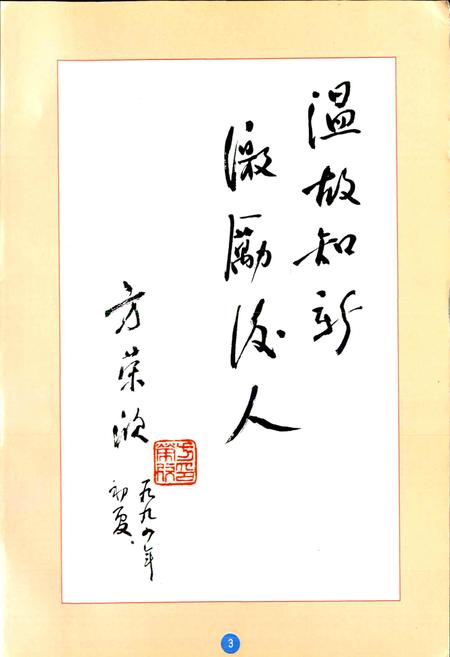 温故知新
激勵後人
方荣欣
一九九四年
初夏.
3